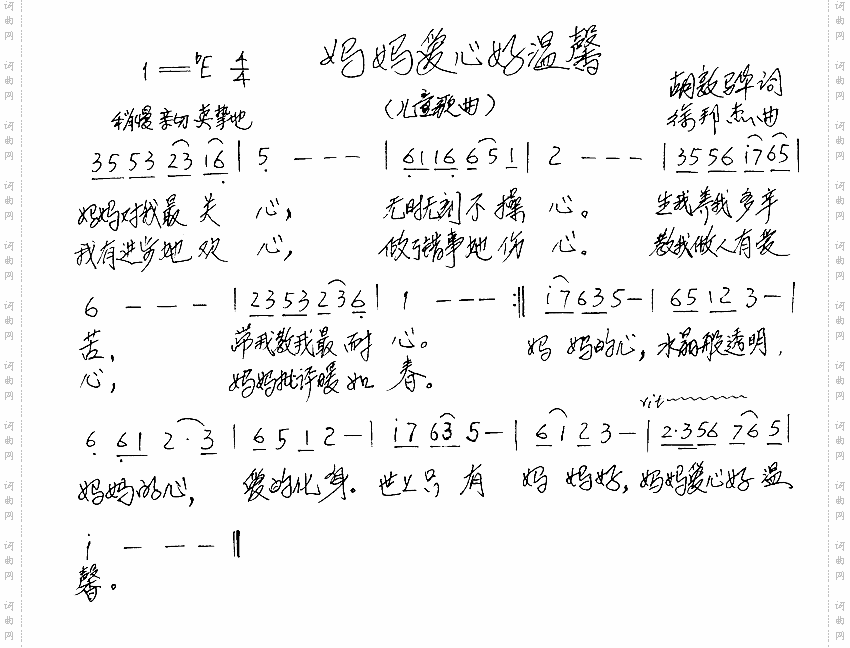 妈妈爱心好温馨
1=♭E 4/4
(儿童歌曲)
胡敦骅词
徐邦杰曲
稍慢 亲切 真挚地
3553 23 i6 | 5 - - - | 6116 651 | 2 - - - | 3556 i765 |
妈妈对我最关心, 无时无刻不操心。 生我养我多辛
我有进步她欢心, 做了错事她伤心。 教我做人有爱
6 - - - | 2353 236 | 1 - - - :‖ i7635- | 6512 3- |
苦, 带我教我最耐心。 妈妈的心,水晶般透明,
心, 妈妈批评暖如春。
rit
6 61 2·3 | 6 5 1 2 - | i7 63 5 - | 61 2 3 - | 2·356 765 |
妈妈的心, 爱的化身。世上只有妈妈好,妈妈爱心好温
i - - - ‖
馨。
词曲网